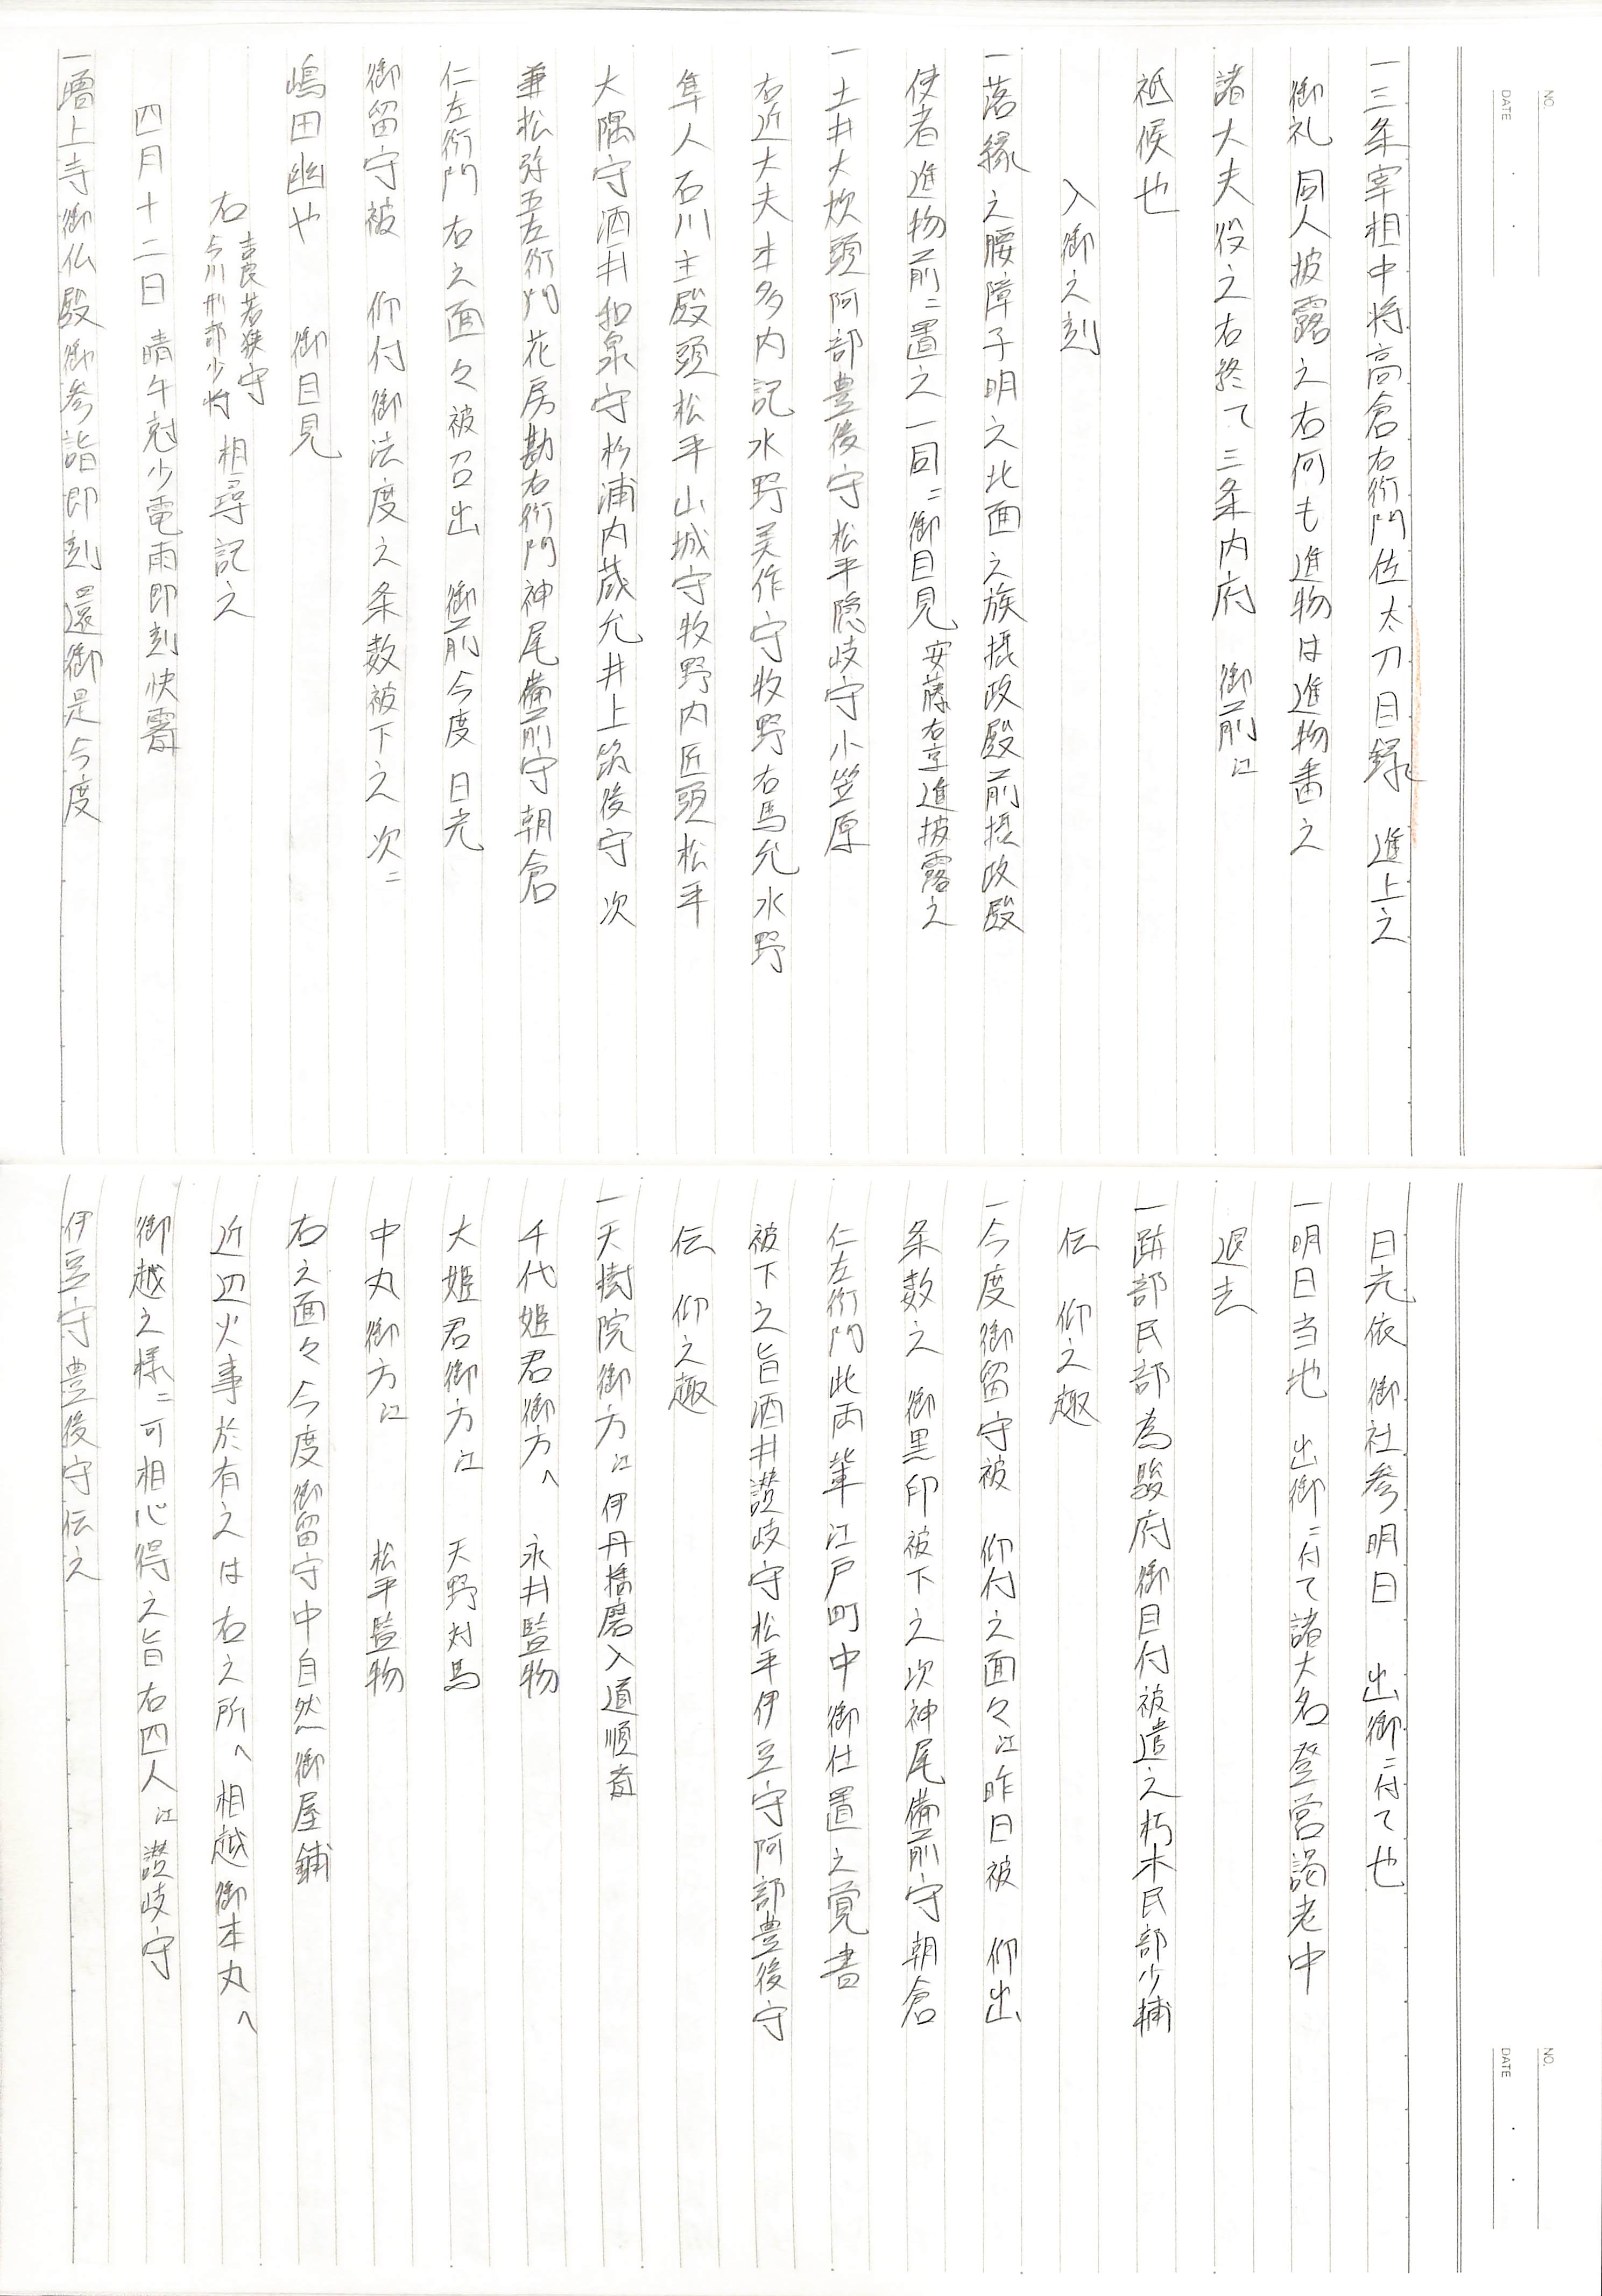 NO.
DATE
一三条宰相中将高倉右衛門佐太刀目録　進上之
御礼同人披露之右何も進物は進物番之
諸大夫役之右終て三条内府　御前江
祗候也
入御之刻
一落縁之腰障子明之北面之族摂政殿前摂政殿
使者進物前ニ置之一同ニ御目見安藤右京進披露之
一土井大炊頭阿部豊後守松平隠岐守小笠原
右近大夫本多内記水野美作守牧野右馬允水野
隼人石川主殿頭松平山城守牧野内匠頭松平
大隅守酒井和泉守杉浦内蔵允井上筑後守次
兼松弥五左衛門花房勘右衛門神尾備前守朝倉
仁左衛門右之面々被召出　御前今度日光
御留守被　仰付御法度之条数被下之次ニ
嶋田幽也　御目見
右
吉良若狭守
今川刑部少将
相尋記之
四月十二日晴午刻少電雨即刻快霽
一増上寺御仏殿御参詣即刻還御是今度
NO.
DATE
日光依　御社参明日　出御ニ付て也
一明日当地　出御ニ付て諸大名登営謁老中
退去
一跡部民部為駿府御目付被遣之朽木民部少輔
伝　仰之趣
一今度御留守被　仰付之面々江昨日被　仰出
条数之　御黒印被下之次神尾備前守朝倉
仁左衛門此両輩江戸町中御仕置之覚書
被下之旨酒井讃岐守松平伊豆守阿部豊後守
伝　仰之趣
一天樹院御方江　伊丹播磨入道順斎
千代姫君御方へ　永井監物
大姫君御方江　天野対馬
中丸御方江　松平監物
右之面々今度御留守中自然御屋鋪
近辺火事於有之は右之所へ相越御本丸へ
御越之様ニ可相心得之旨右四人江讃岐守
伊豆守豊後守伝之